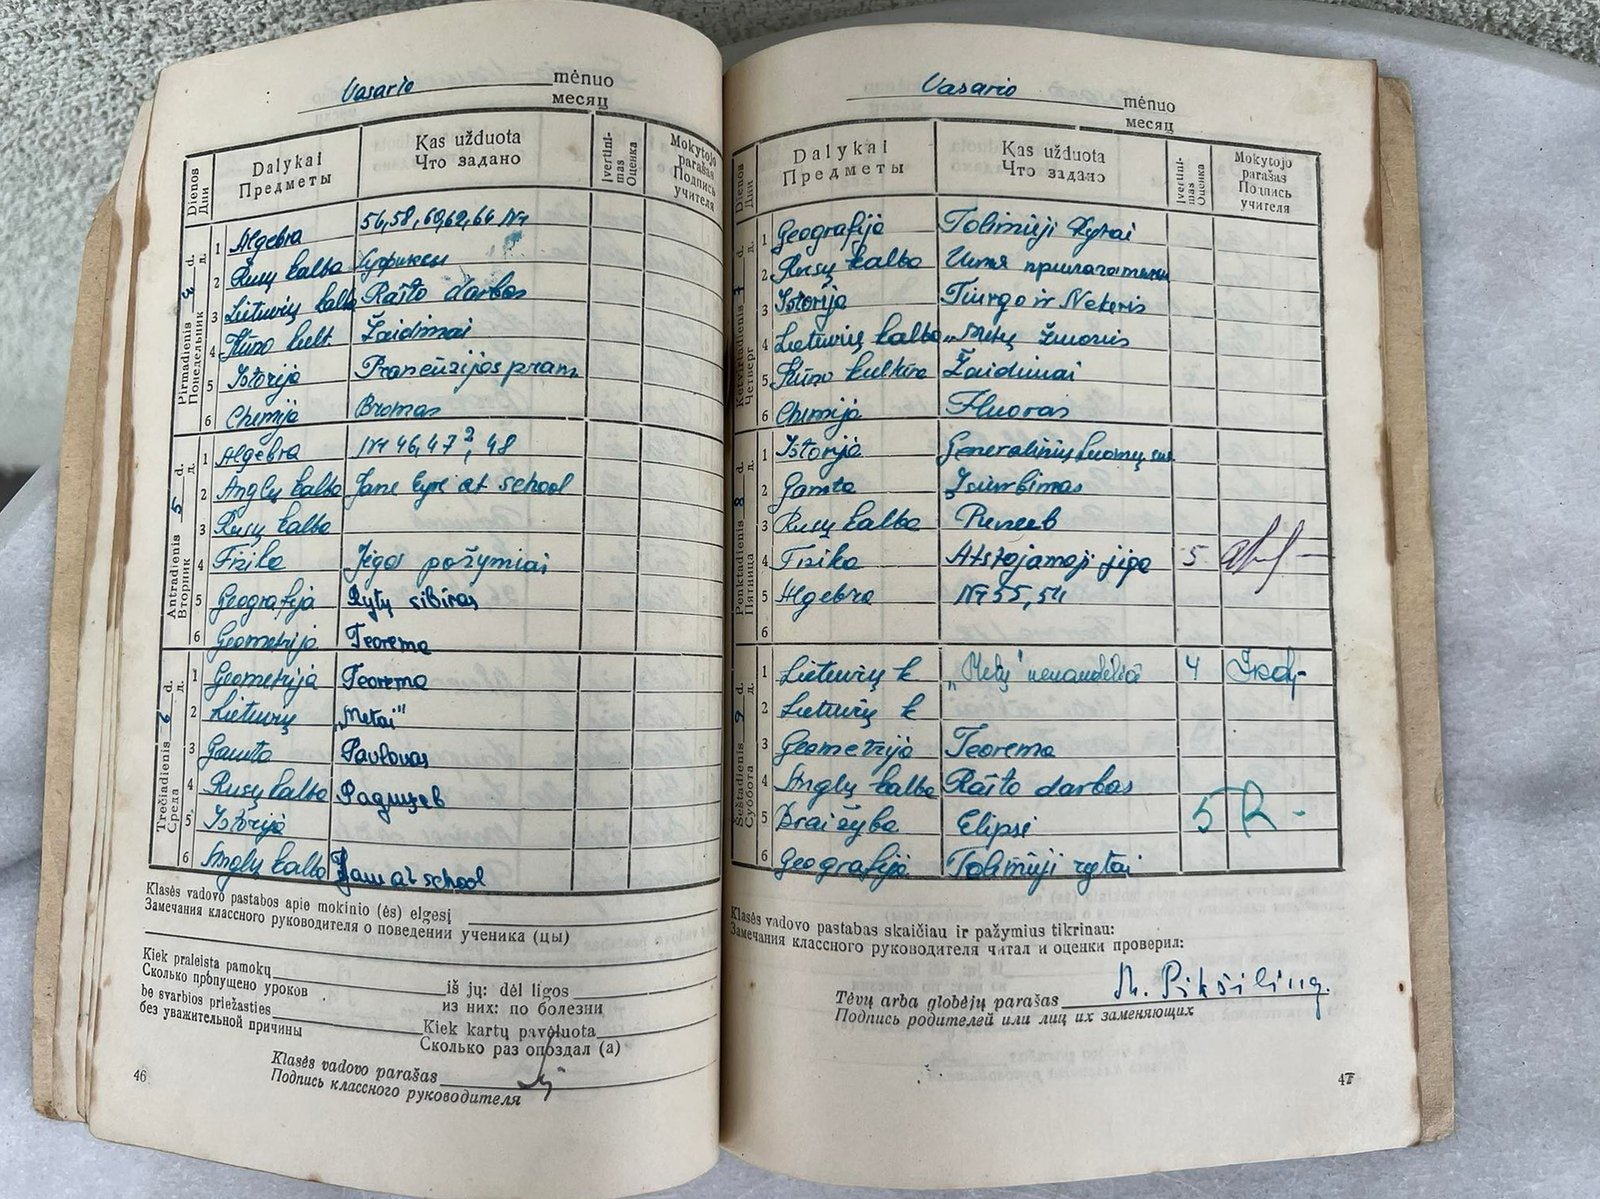 Vasario mėnuo
месяц
Dienos Дни
Dalykai Предметы
Kas užduota Что задано
Įvertinimas Оценка
Mokytojo parašas Подпись учителя
Pirmadienis d.
Понедельник д.
1 Algebra 56, 58, 60, 62, 64 Nr
2 Rusų kalba Суффиксы
3 Lietuvių kalba Rašto darbas
4 Kūno kult. Žaidimai
5 Istorija Prancūzijos pram.
6 Chemija Bromas
Antradienis 5 d.
Вторник д.
1 Algebra Nr 46, 47, 48
2 Anglų kalba Jane Eyre at school
3 Rusų kalba
4 Fizika Jėgos požymiai
5 Geografija Rytų sibiras
6 Geometrija Teorema
Trečiadienis 6 d.
Среда д.
1 Geometrija Teorema
2 Lietuvių „Metai"
3 Gamta Pavlovas
4 Rusų kalba Радищев
5 Istorija
6 Anglų kalba at school
Klasės vadovo pastabos apie mokinio (ės) elgesį
Замечания классного руководителя о поведении ученика (цы)
Kiek praleista pamokų iš jų: dėl ligos
Сколько пропущено уроков из них: по болезни
be svarbios priežasties Kiek kartų pavėluota
без уважительной причины Сколько раз опоздал (а)
Klasės vadovo parašas
Подпись классного руководителя
46
Vasario mėnuo
месяц
Dienos Дни
Dalykai Предметы
Kas užduota Что задано
Įvertinimas Оценка
Mokytojo parašas Подпись учителя
Ketvirtadienis 7 d.
Четверг д.
1 Geografija Tolimieji Rytai
2 Rusų kalba Имя прилагательн
3 Istorija Tiurgo ir Nekeris
4 Lietuvių kalba „Metų žmonės
5 Kūno kultūra Žaidimai
6 Chemija Fluoras
Penktadienis 8 d.
Пятница д.
1 Istorija Generalinių luomų sus.
2 Gamta Įsiurbimas
3 Rusų kalba Рылеев
4 Fizika Atstojamoji jėga 5
5 Algebra Nr 55, 54
6
Šeštadienis 9 d.
Суббота д.
1 Lietuvių k „Metų" 4
2 Lietuvių k
3 Geometrija Teorema
4 Anglų kalba Rašto darbas
5 Braižyba Elipsė 5
6 Geografija Tolimieji rytai
Klasės vadovo pastabas skaičiau ir pažymius tikrinau:
Замечания классного руководителя читал и оценки проверил:
Tėvų arba globėjų parašas
Подпись родителей или лиц их заменяющих
47